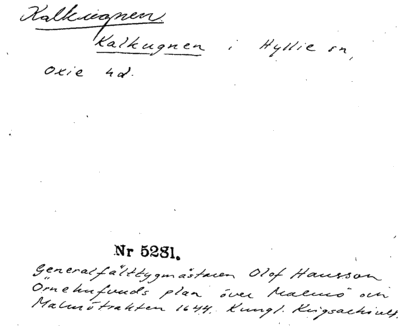 Kalkugnen.
Kalkugnen i Hyllie sn,
Oxie hd.
Nr 5281.
Generalfälttygmästaren Olof Hansson
Örnehufvuds plan över Malmö och
Malmötrakten 1644. Kungl. Krigsarkivet.